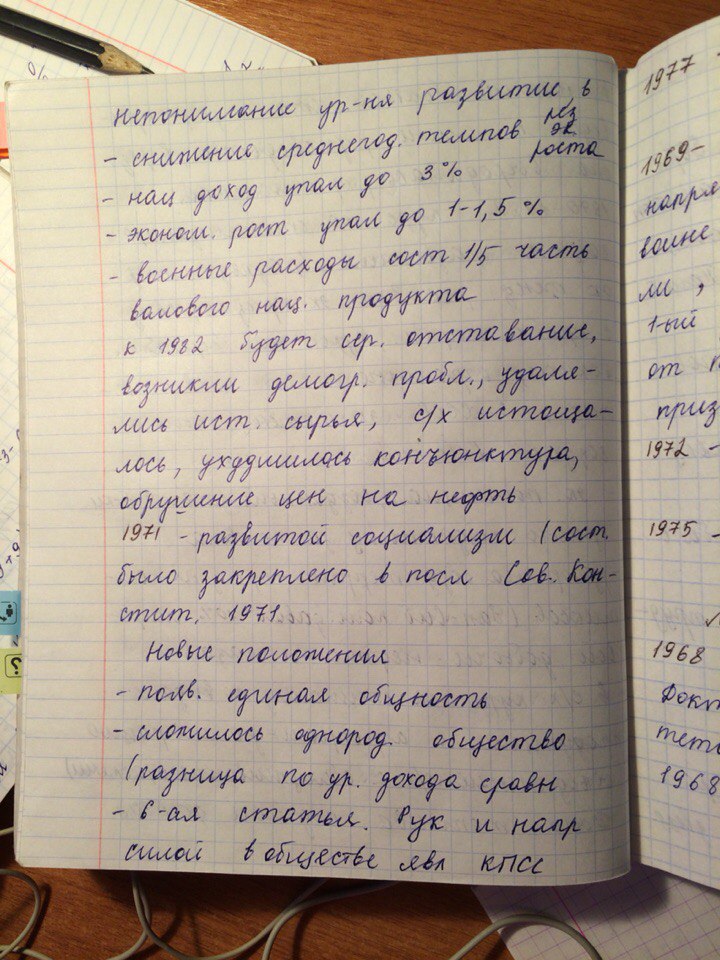 непонимание ур-ня развитие, в
рез
- снижение среднегод. темпов эк
роста
- нац доход упал до 3%
- эконом. рост упал до 1-1,5%
- военные расходы сост 1/5 часть
валового нац. продукта
к 1982 будет сер. отставание,
возникли демогр. пробл., удаля-
лись ист. сырья, с/х истоща-
лось, ухудшилось конъюнктура,
обрушение цен на нефть
1971 - развитой социализм (сост.
было закреплено в посл Сов. Кон-
стит. 1971.
Новые положения
- появ. единая общность
- сложилось однород. общество
(разница по ур. дохода сравн
- 6-ая статья. Рук и напр
силой в обществе явл КПСС
1977 -
1969-
напря
воине
ли,
1-ый
от
приз
1972 -
1975 -
1968
Докт
тето
1968